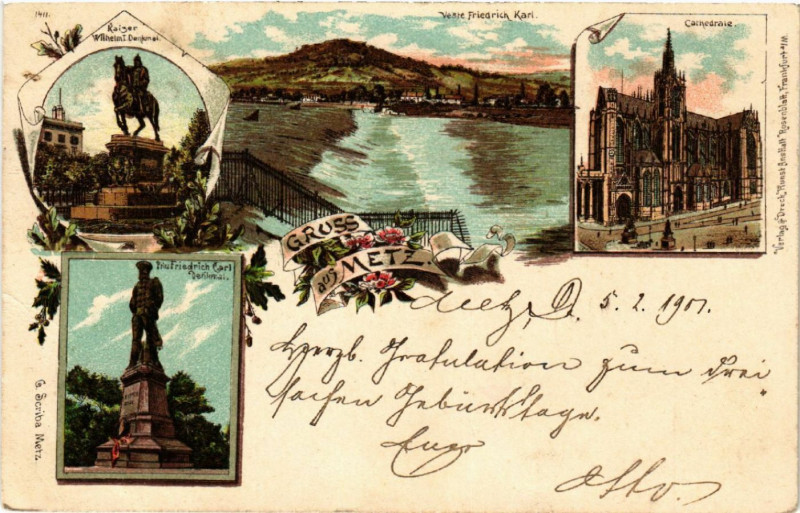 1411.
Kaiser
Wilhelm I. Denkmal.
Veste Friedrich Karl.
Cathedrale.
Verlag & Druck, Kunst Anstalt Rosenblatt, Frankfurt a/M.
GRUSS
aus METZ.
Prinz Friedrich Carl
Denkmal.
G. Scriba Metz.
Metz, D. 5.2.1901.
Herzl. Gratulation zum drei
fachen Geburtstage.
Euer
Otto.